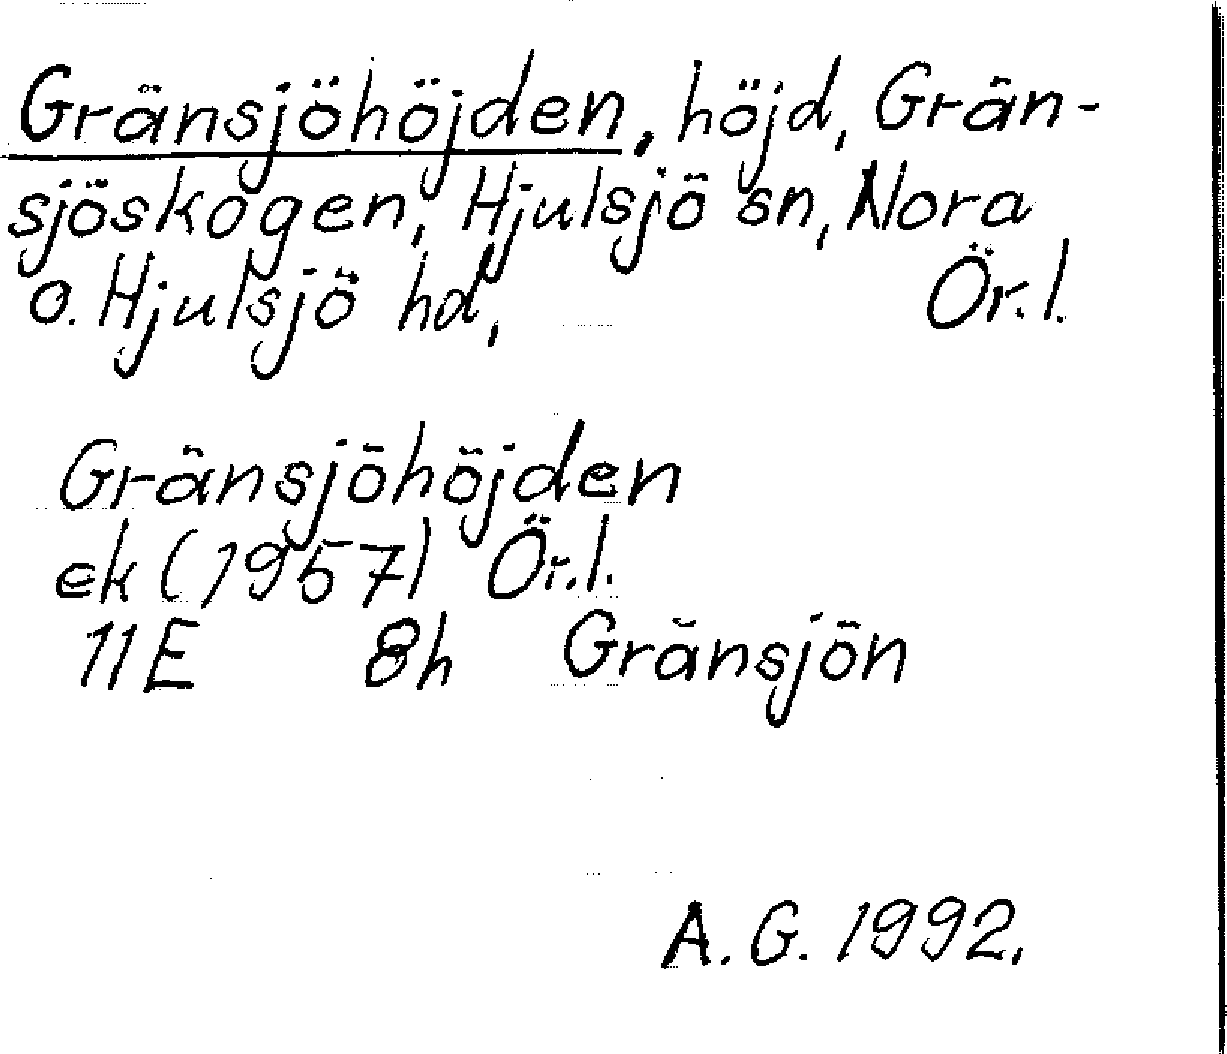 Gränsjöhöjden, höjd, Grän-
sjöskogen, Hjulsjö sn, Nora
o. Hjulsjö hd, Ör. l.
Gränsjöhöjden
ek (1957) Ör. l.
11E 8h Gränsjön
A. G. 1992.